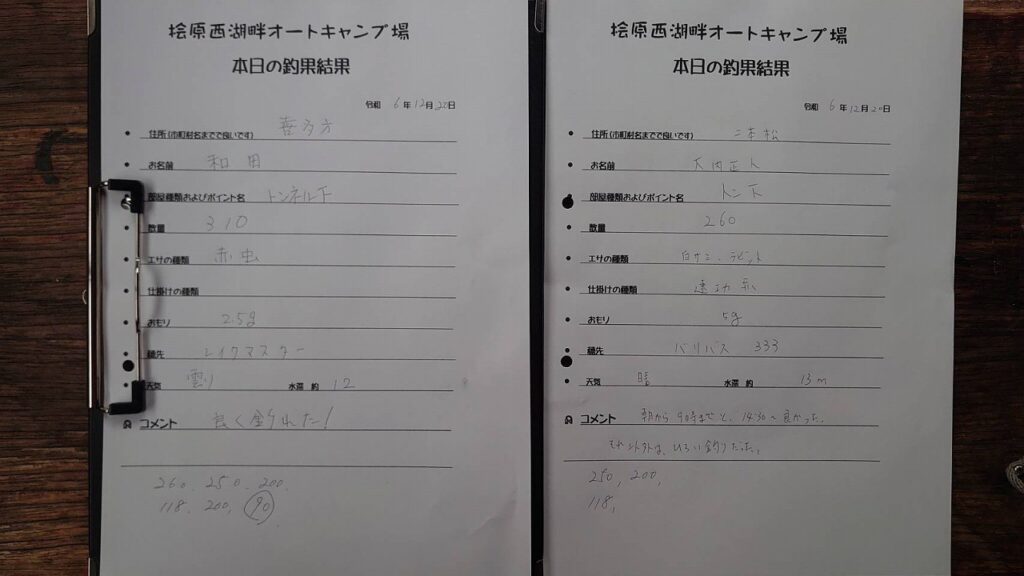 桧原西湖畔オートキャンプ場
本日の釣果結果
令和 6年12月22日
住所(市町村名までで良いです) 喜多方
お名前 和田
部屋種類およびポイント名 トンネル下
数量 310
エサの種類 赤虫
仕掛けの種類
おもり 2.5g
穂先 レイクマスター
天気 曇り 水深 約 12
コメント 良く釣れた!
260. 250. 200.
118. 200. 90
桧原西湖畔オートキャンプ場
本日の釣果結果
令和 6年12月20日
住所(市町村名までで良いです) 二本松
お名前 大内正人
部屋種類およびポイント名 トン下
数量 260
エサの種類 白サシ、ラビット
仕掛けの種類 速功系
おもり 5g
穂先 バリバス 333
天気 晴 水深 約 13m
コメント 朝から9時までと、14:30〜良かった。
それ以外は、ひろい釣りだった。
250, 200,
118,